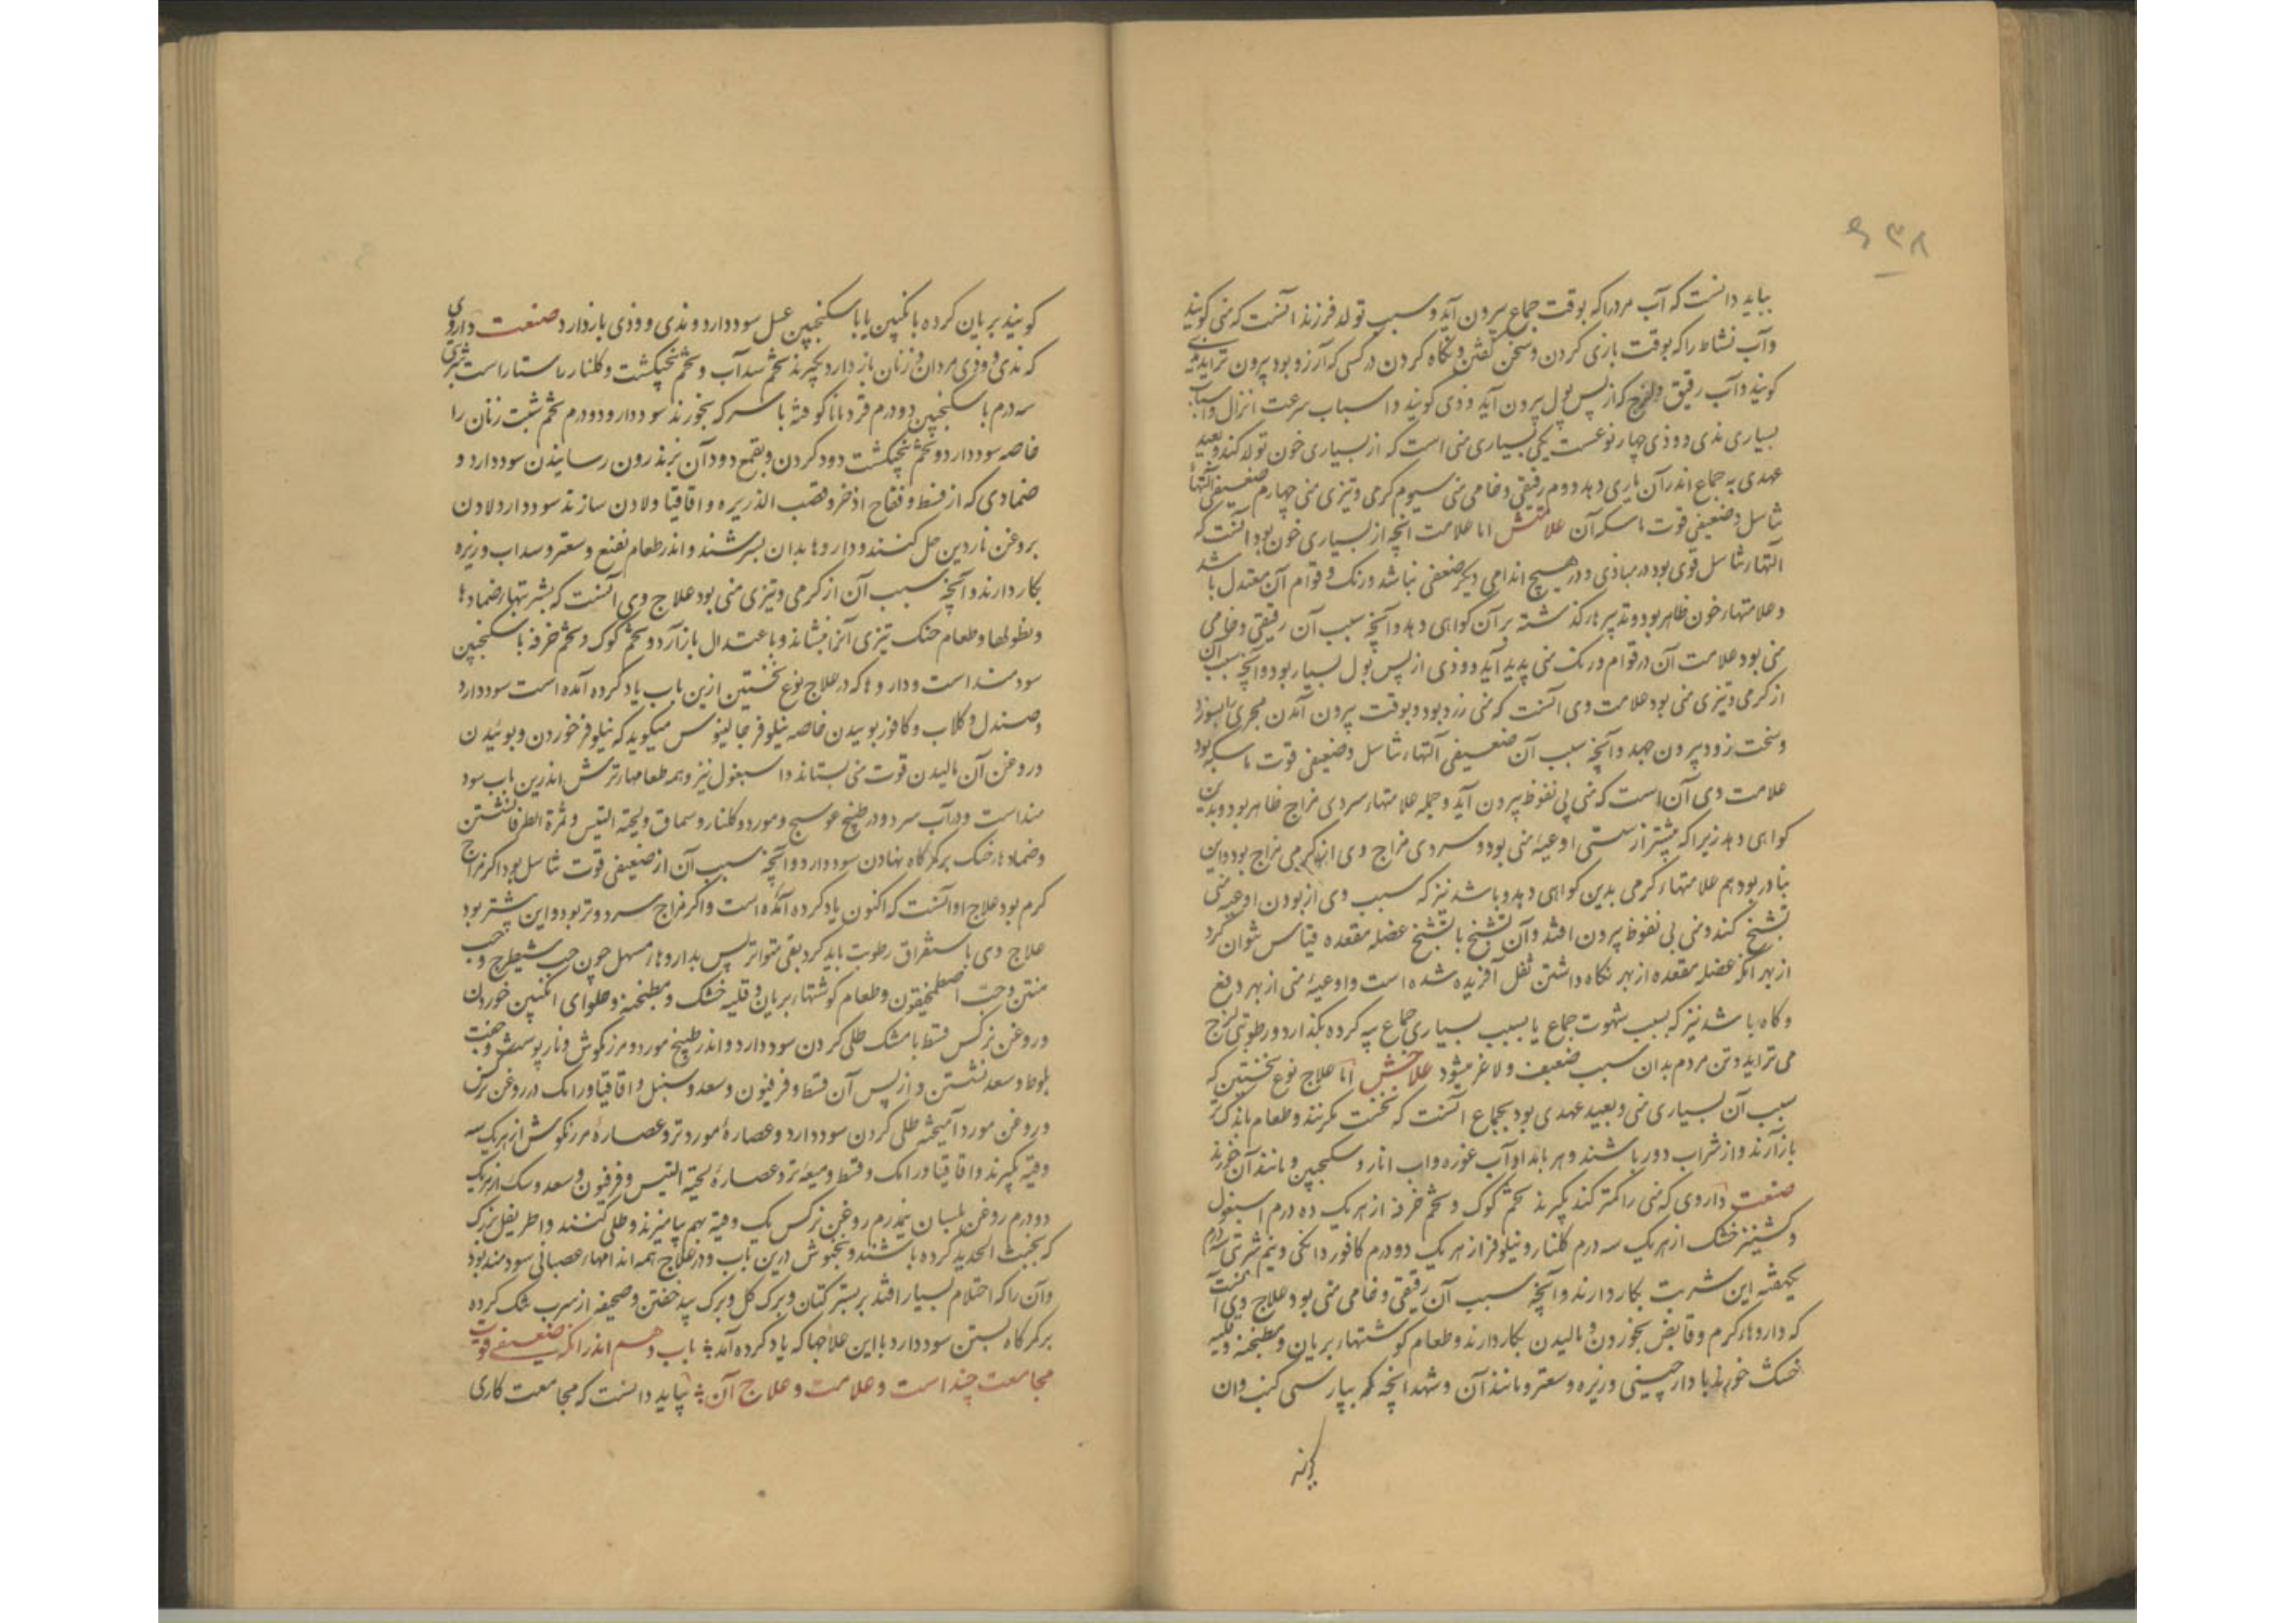 ۶۳۸
بباید دانست که آب مرد را که بوقت جماع بیرون آید و سبب تولد فرزند آنست که منی کویند
وآب نشاط را که بوقت بازی کردن و سخن کفتن و نکاه کردن در کسی که آرزو بود بیرون تراید مذی
کویند وآب رقیق و لزج که از پس بول بیرون آید وذی کویند و اسباب سرعت انزال و اسباب
بسیاری مذی و وذی چهار نوعست یکی بسیاری منی است که از بسیاری خون تولد کند و بعید
عهدی به جماع اندر آن یاری دهد دوم رقیقی و خامی منی سیوم کرمی و تیزی منی چهارم ضعیفی آلتهاء
تناسل و ضعیفی قوت ماسکه آن علامتش اما علامت انچه از بسیاری خون بود آنست که
آلتهاء تناسل قوی بود در مباذی و در هیچ اندامی دیکر ضعفی نباشد و رنک و قوام آن معتدل باشد
و علامتهاء خون ظاهر بود و تدبیرهاء کذشته بر آن کواهی دهد و آنچه سبب آن رقیقی و خامی
منی بود علامت آن در قوام و رنک منی پدید آید و وذی از پس بول بسیار بود و آنچه سبب آن
از کرمی و تیزی منی بود علامت وی آنست که منی زرد بود و بوقت بیرون آمدن مجری را بسوزد
و سخت زود بیرون جهد و آنچه سبب آن ضعیفی آلتهاء تناسل و ضعیفی قوت ماسکه بود
علامت وی آن است که منی بی نفوظ بیرون آید و جمله علامتهاء سردی مزاج ظاهر بود و بدین
کواهی دهد زیرا که بیشتر از سستی اوعیهٔ منی بود و سردی مزاج وی از کرمی مزاج بود و این
بنادر بود هم علامتهاء کرمی بدین کواهی دهد و باشد نیز که سبب وی از بودن اوعیه منی
تشنج کند و منی بی نفوظ بیرون افتد و آن تشنج با تشنج عضله مقعده قیاس بتوان کرد
از بهر انکه عضله مقعده از بهر نکاه داشتن ثفل آفریده شده است و اوعیهٔ منی از بهر دفع
و کاه باشد نیز که بسبب شهوت جماع یا بسبب بسیاری جماع پیه کرده بکذارد و رطوبتی لزج
می تراید و تن مردم بدان سبب ضعیف و لاغر میشود علاجش اما علاج نوع نخستین که
سبب آن بسیاری منی و بعید عهدی بود بجماع آنست که نخست رک زنند و طعام باندک تر
باز آرند و از شراب دور باشند و هر بامداد آب غوره و اب انار و سکنجبین و مانند آن خورند
صنعت داروی که منی را کمتر کند بکیرند تخم کوک و تخم خرفه از هر یک ده درم اسبغول
و کشنیز خشک از هر یک سه درم کلنار و نیلوفر از هر یک دو درم کافور دانکی و نیم شربتی سه درم
یکهفته این شربت بکار دارند و آنچه سبب آن رقیقی و خامی منی بود علاج وی آنست
که داروهاء کرم و قابض بخوردن و مالیدن بکار دارند و طعام کوشتهاء بریان و مطبخنه و قلیه
خشک خورند با دارچینی و زیره و سعتر و مانند آن و شهدانخه که بپارسی کنب دان
کویند
کویند بریان کرده با نکبین یا با سکنجبین عسل سود دارد و مذی و وذی باز دارد صنعت داروی
که مذی و وذی مردان و زنان باز دارد بکیرند تخم سداب و تخم پنجنکشت و کلنار راستاراست شربتی
سه درم با سکنجبین دو درم قردمانا کوفته با سرکه بخورند سود دارد و دو درم تخم شبت زنان را
خاصه سود دارد و تخم پنجنکشت دود کردن و بقمع دود آن بزیر درون رسانیدن سود دارد و
ضمادی که از قسط و فقاح اذخر و قصب الذریره و اقاقیا و لادن سازند سود دارد لادن
بروغن ناردین حل کنند و داروها بدان بسرشند و اندر طعام نعنع و سعتر و سداب و زیره
بکار دارند و آنچه سبب آن از کرمی و تیزی منی بود علاج وی آنست که بشربتها و ضمادها
و نطولها و طعام خنک تیزی آنرا بنشاند و باعتدال باز آرد و تخم کوک و تخم خرفه با سکنجبین
سودمند است و داروها که در علاج نوع نخستین ازین باب یاد کرده آمده است سود دارد
و صندل و کلاب و کافور بوییدن خاصه نیلوفر جالینوس میکوید که نیلوفر خوردن و بوئیدن
و روغن آن مالیدن قوت منی بستاند و اسبغول نیز و همه طعامهاء ترش اندرین باب سود
مند است و در آب سرد و در طبیخ عوسج و مورد و کلنار و سماق و لحیة التیس و ثمرة الطرفا نشستن
و ضمادهاء خنک بر کمرکاه نهادن سود دارد و آنچه سبب آن از ضعیفی قوت تناسل بود اکر مزاج
کرم بود علاج او آنست که اکنون یاد کرده آمده است و اکر مزاج سرد و تر بود و این بیشتر بود
علاج وی باستفراق رطوبت باید کرد بقی متواتر پس بداروهاء مسهل چون حب شیطرج و حب
منتن و حب اصطمخیقون و طعام کوشتهاء بریان و قلیه خشک و مطبخنه و حلوای انکبین خوردن
و روغن نرکس قسط با مشک طلی کردن سود دارد و اندر طبیخ مورد و مرزنکوش و نار پوست و جفت
بلوط و سعد نشستن و از پس آن قسط و فرفیون و سعد و سنبل و اقاقیا و رامک در روغن نرکس
و روغن مورد آمیخته طلی کردن سود دارد و عصارهٔ مورد تر و عصارهٔ مرزنکوش از هر یک سه
وقیه بکیرند و اقاقیا و رامک و قسط و میعهٔ تر و عصارهٔ لحیة التیس و فرفیون و سعد و سک از هر یک
دو درم روغن بلسان نیم درم روغن نرکس یک وقیه بهم بیامیزند و طلی کنند و اطریفل بزرک
که بخبث الحدید کرده باشند و بخنوش درین باب و در علاج همه اندامهاء عصبانی سودمند بود
وآن را که احتلام بسیار افتد بر بستر کتان و برک کل و برک بید خفتن و صحیفه از سرب تنک کرده
بر کمرکاه بستن سود دارد با این علاجها که یاد کرده آمد باب دهم اندر انکه ضعیفی قوت
مجامعت چند است و علامت و علاج آن بباید دانست که مجامعت کاری